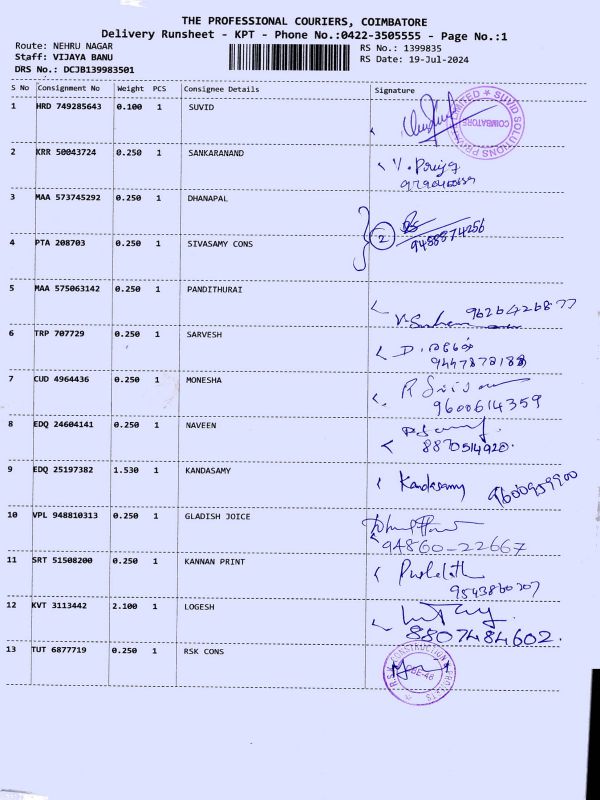 THE PROFESSIONAL COURIERS, COIMBATORE
Delivery Runsheet - KPT - Phone No.:0422-3505555 - Page No.:1
Route: NEHRU NAGAR
Staff: VIJAYA BANU
DRS No.: DCJB139983501
RS No.: 1399835
RS Date: 19-Jul-2024
S No Consignment No Weight PCS Consignee Details Signature
1 HRD 749285643 0.100 1 SUVID
SUVID SOLUTIONS COIMBATORE
2 KRR 50043724 0.250 1 SANKARANAND
Y. Priya
3 MAA 573745292 0.250 1 DHANAPAL
2 9488874256
4 PTA 208703 0.250 1 SIVASAMY CONS
5 MAA 575063142 0.250 1 PANDITHURAI
9626426877
6 TRP 707729 0.250 1 SARVESH
D.
7 CUD 4964436 0.250 1 MONESHA
R
9600614359
8 EDQ 24604141 0.250 1 NAVEEN
8870514920.
9 EDQ 25197382 1.530 1 KANDASAMY
Kandasamy 9600959900
10 VPL 948810313 0.250 1 GLADISH JOICE
94860-22667
11 SRT 51508200 0.250 1 KANNAN PRINT
12 KVT 3113442 2.100 1 LOGESH
8807484602.
13 TUT 6877719 0.250 1 RSK CONS
R.S.K CONSTRUCTION CBE-46